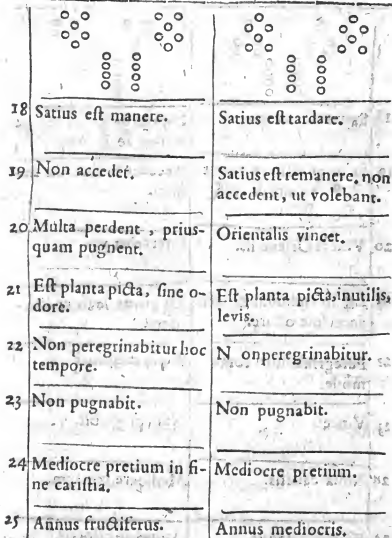 18 Satius est manere.
Satius est tardare.
19 Non accedet.
Satius est remanere, non
accedent, ut volebant.
20 Multa perdent, prius-
quam pugnent.
Orientalis vincet.
21 Est planta picta, sine o-
dore.
Est planta picta, inutilis,
levis.
22 Non peregrinabitur hoc
tempore.
N onperegrinabitur.
23 Non pugnabit.
Non pugnabit.
24 Mediocre pretium in fi-
ne caristia.
Mediocre pretium.
25 Annus fructiferus.
Annus mediocris.